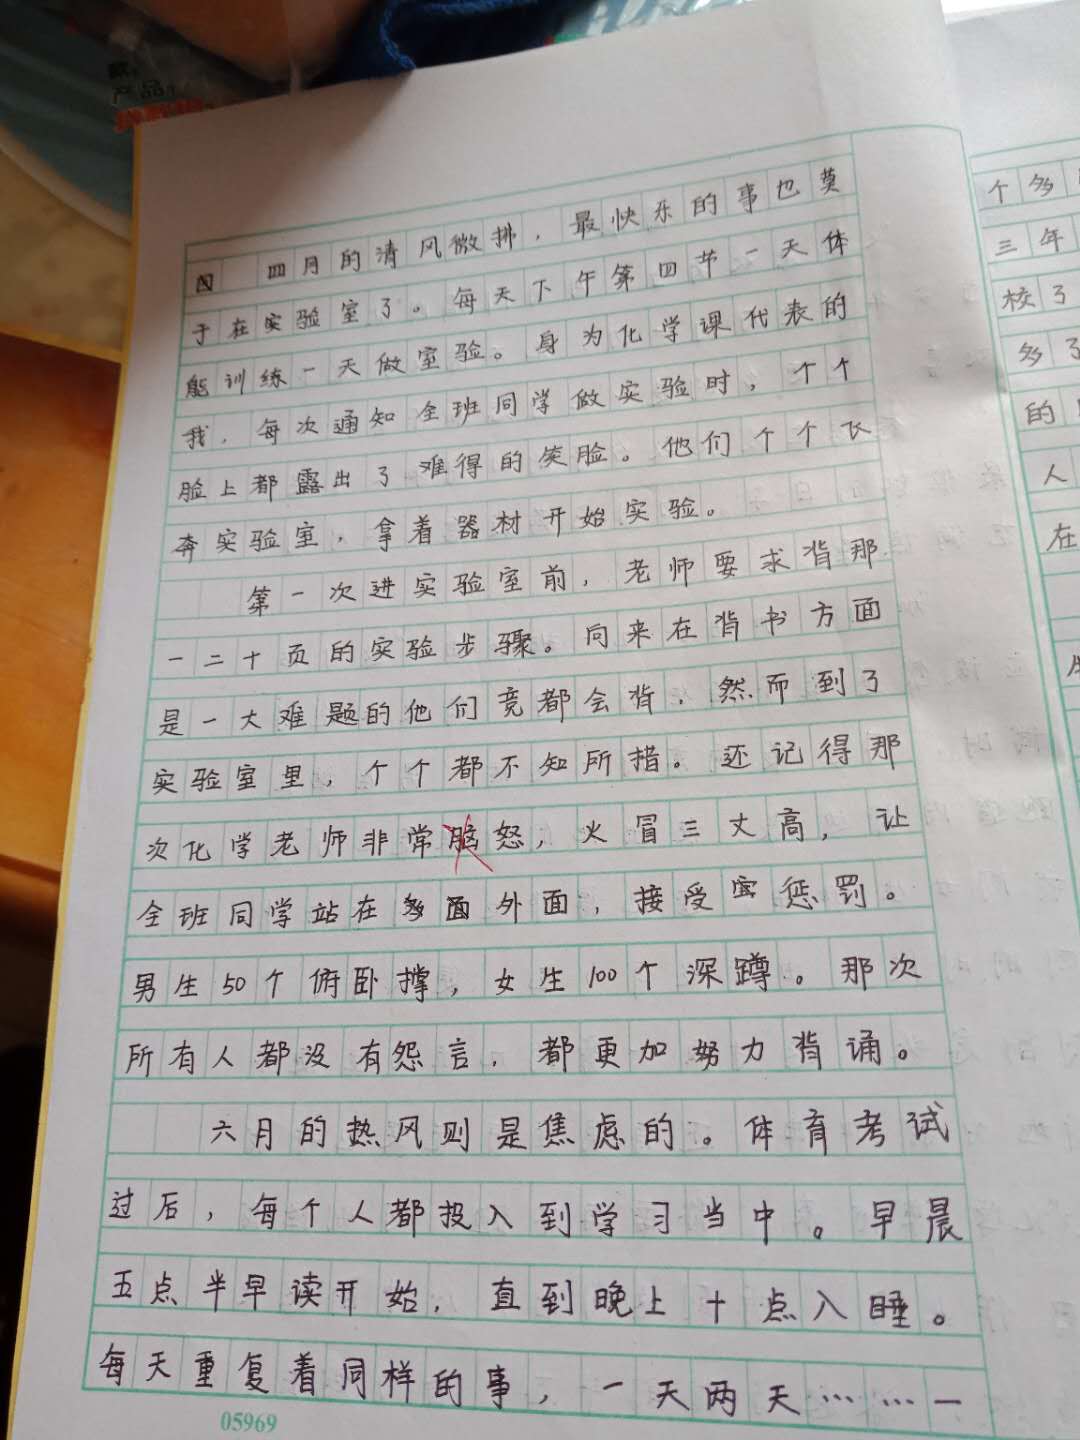 产品
四月的清风微拂，最快乐的事也莫
于在实验室了。每天下午第四节一天体
能训练一天做室验。身为化学课代表的
我，每次通知全班同学做实验时，个个
脸上都露出了难得的笑脸。他们个个飞
奔实验室，拿着器材开始实验。
第一次进实验室前，老师要求背那
一二十页的实验步骤。向来在背书方面
是一大难题的他们竟都会背，然而到了
实验室里，个个都不知所措。还记得那
次化学老师非常怒，火冒三丈高，让
全班同学站在外面，接受惩罚。
男生50个俯卧撑，女生100个深蹲。那次
所有人都没有怨言，都更加努力背诵。
六月的热风则是焦虑的。体育考试
过后，每个人都投入到学习当中。早晨
五点半早读开始，直到晚上十点入睡。
每天重复着同样的事，一天两天……一
05969
个多
三年
校了
多了
的
人
在